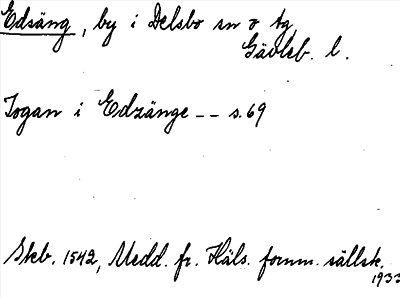 Edsäng, by i Delsbo sn o tg
Gävleb. l.
Jogan i Edzänge -- s. 69
Skb. 1542, Medd. fr. Häls. fornm. sällsk.
1933